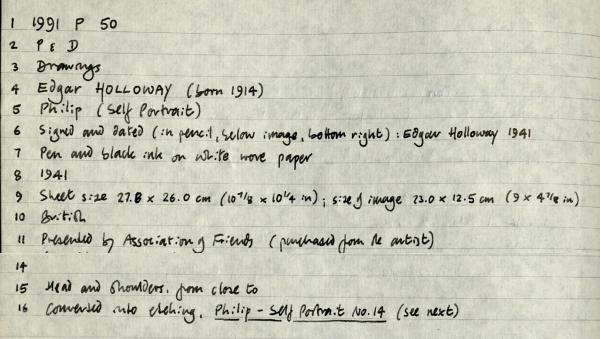 1 1991 P 50
2 P & D
3 Drawings
4 Edgar HOLLOWAY (born 1914)
5 Philip (Self Portrait)
6 Signed and dated (in pencil, below image, bottom right) : Edgar Holloway 1941
7 Pen and black ink on white wove paper
8 1941
9 Sheet size 27.8 x 26.0 cm (10 7/8 x 10 1/4 in) ; size of image 23.0 x 12.5 cm (9 x 4 7/8 in)
10 British
11 Presented by Association of Friends (purchased from the artist)
14
15 Head and shoulders, from close to
16 Converted into etching, Philip - Self Portrait No. 14 (see next)